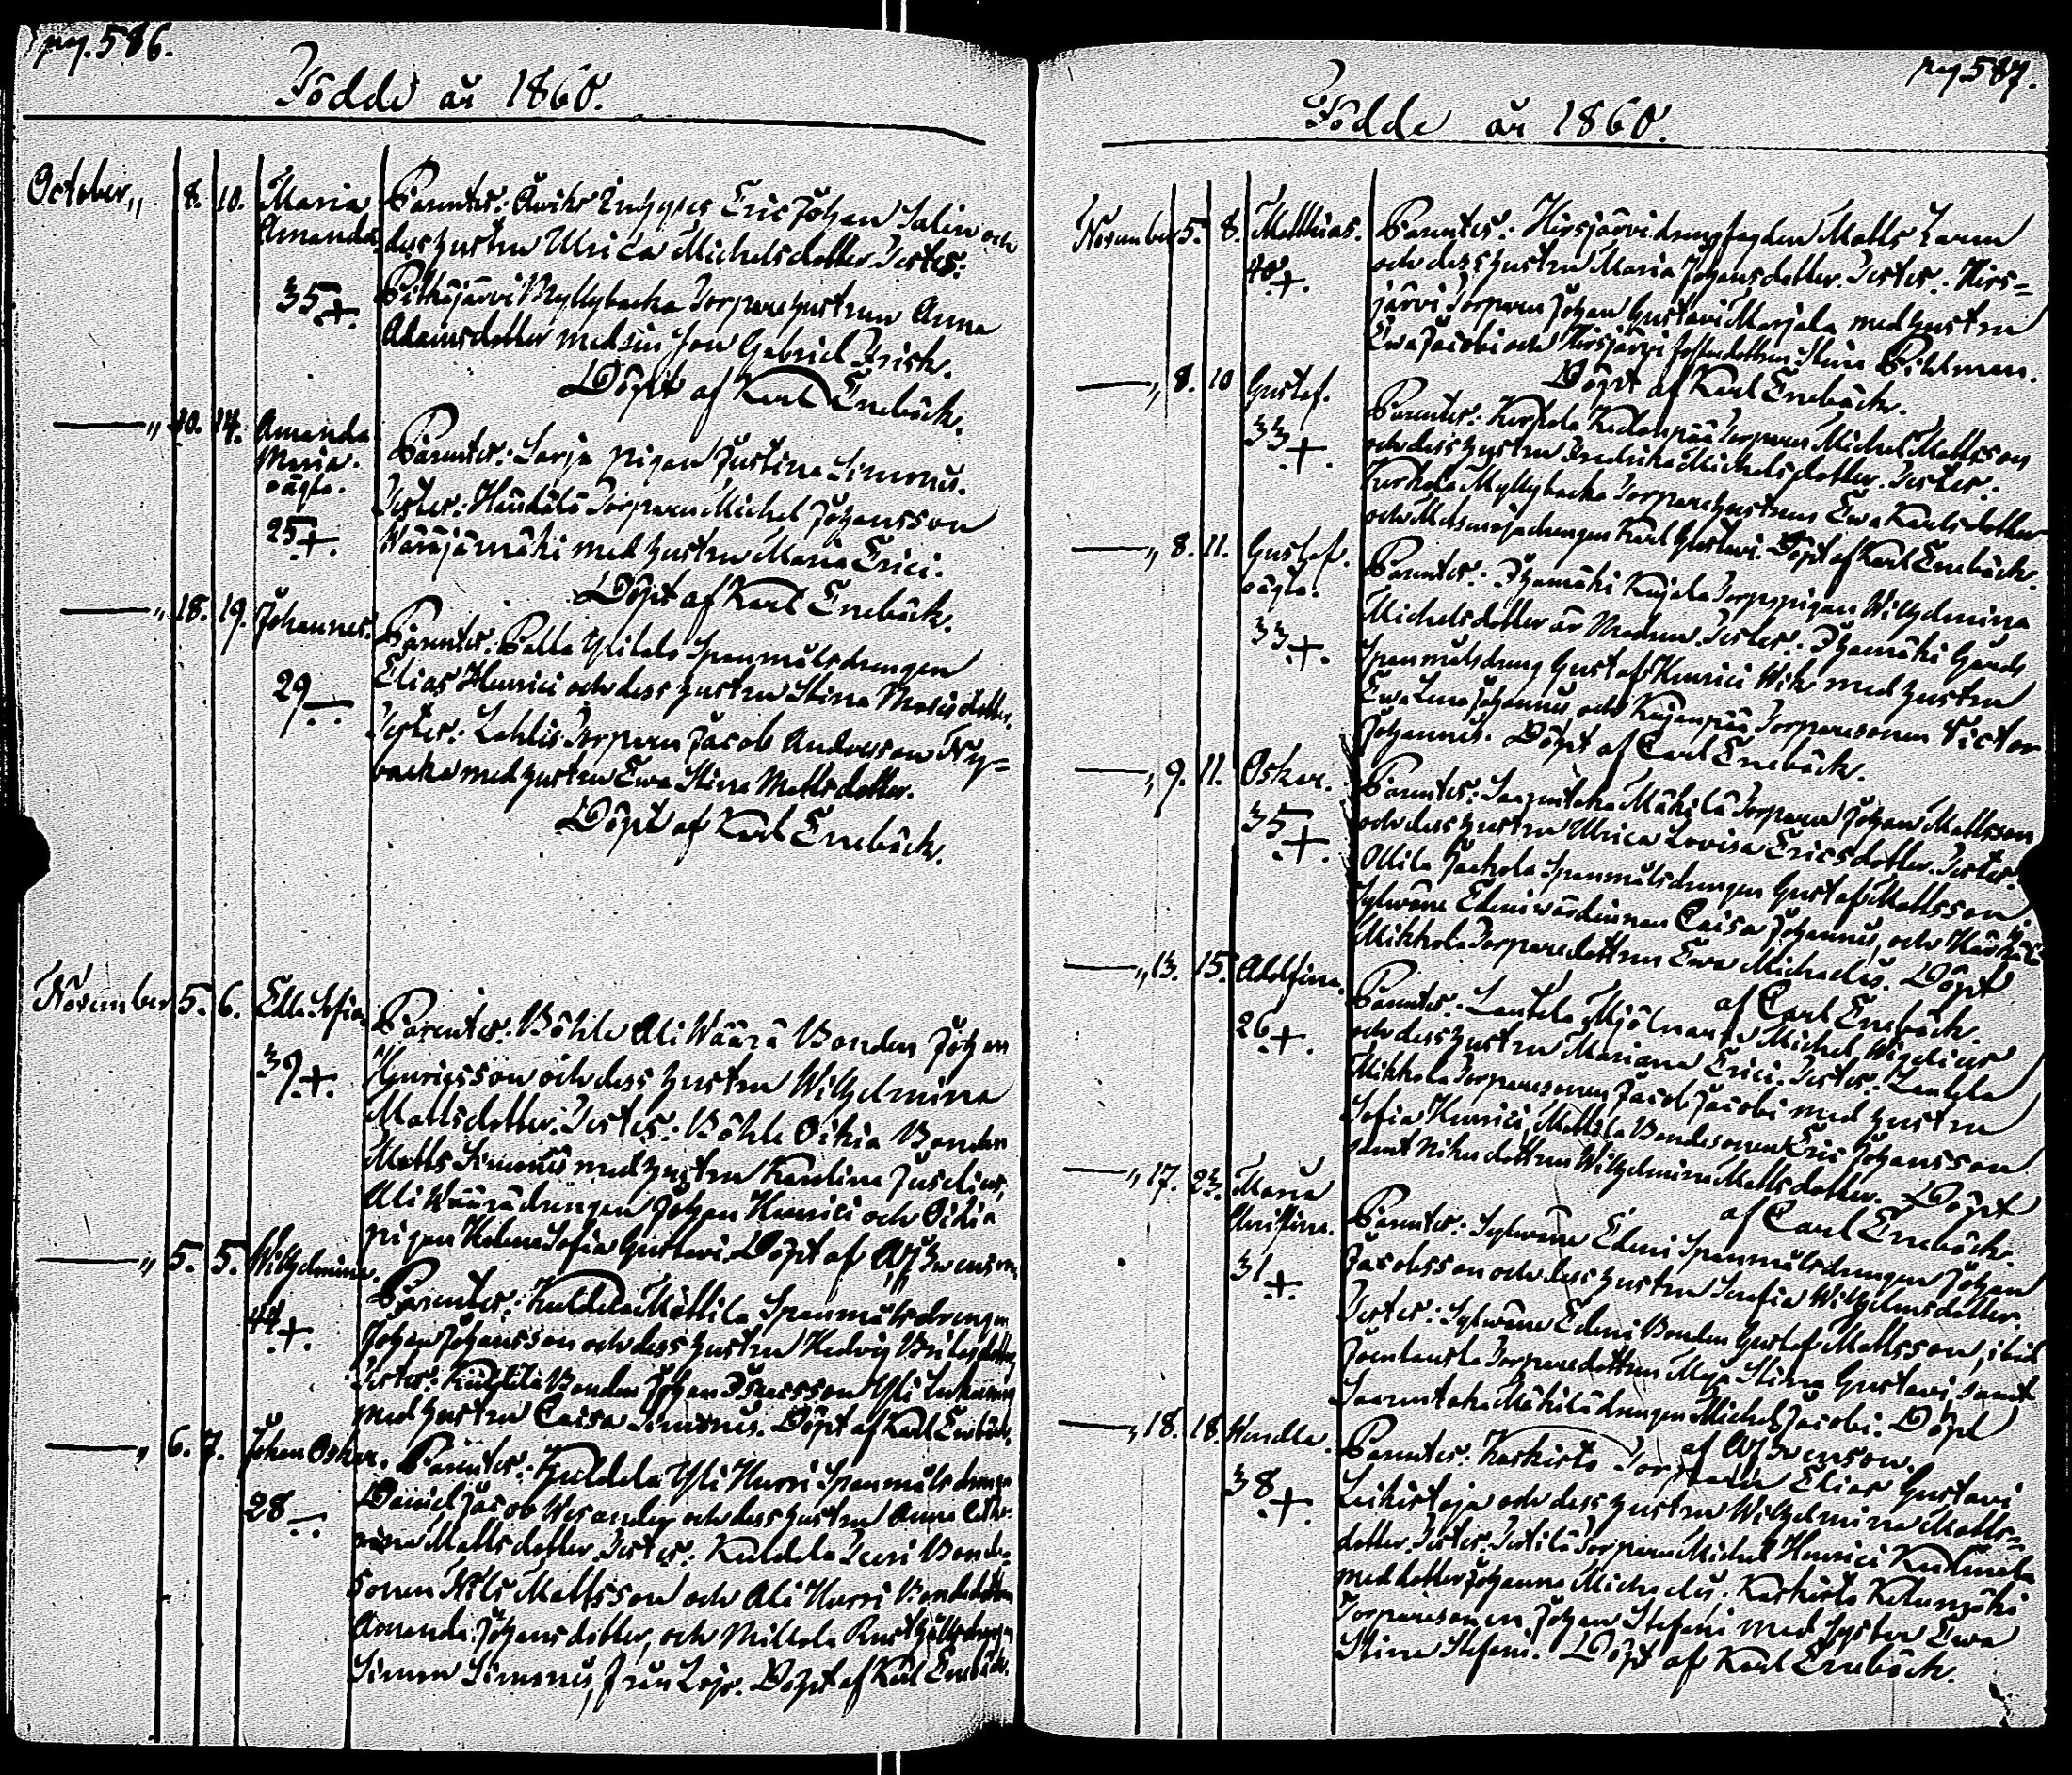 pag. 586.
Födde år 1860.
October „ 8. 10. Maria Amanda 35 +. Parentes: Eric Johan Salin och
dess hustru Ulrica Michelsdotter. Testes:
Pitkäjärvi Myllybacka Torparehustrun Anna
Adamsdotter med sin Son Gabriel Frisk.
Döpt af Karl Enebäck.
— „ 10. 14. Amanda Maria. oägta. 25 +. Parentes: Sarja pigan Justina Simonis.
Testes: Torparen Michel Johansson
med hustru Maria Erici.
Döpt af Karl Enebäck.
— „ 18. 19. Johannes. 29 — Parentes: Palla Ylitalo Spanmålsdrengen
Elias Henrici och dess hustru Stina
Testes: Torparen Jacob Andersson Ny=
backa med hustru Ewa Stina Mattsdotter.
Döpt af Karl Enebäck.
November 5. 6. Edla Sofia. 39 +. Parentes: Böhle Ali Wäärä Bonden Johan
Henricsson och dess hustru Wilhelmina
Mattsdotter. Testes: Böhle Oikia Bonden
Matts Simonis med hustru Karolina Juselius,
Ali Wäärä drengen Johan Henrici och Oikia
pigan Helena Sofia Gustavi. Döpt af
— „ 5. 5. Wilhelmina. 44 +. Parentes: Kuldela Mattila Spanmålsdrengen
Johan Johansson och dess hustru Hedvig
Testes: Bonden Johan Yli
med hustru Caisa Simonis. Döpt af Karl Enebäck.
— „ 6. 7. Johan Oskar. 28 — Parentes: Kuldela Yli Hurri Spanmålsdrengen
Daniel Jacob Wesander och dess hustru Anna Catha-
rina Mattsdotter. Testes: Kuldela Bonde-
sonen Nils Mattsson och Ali Hurri Bondedottren
Amanda Johansdotter, och
Simon Simonis, från Lojo. Döpt af Karl Enebäck.
pag 587.
Födde år 1860.
November 5. 8. Matthias. 40 +. Parentes: Hirsjärvi Matts
och dess hustru Maria Johansdotter. Testes: Hirs=
järvi Torparen Johan Gustavi Marjala med hustru
Ewa Jacobi och Hirsjärvi Stina Pihlman.
Döpt af Karl Enebäck.
— „ 8. 10 Gustaf. 33 +. Parentes: Torparen Michel Mattsson
och dess hustru Fredrika Michelsdotter. Testes:
Myllybacka Torparehustrun Ewa Karlsdotter
och drengen Karl Gustavi. Döpt af Karl Enebäck.
— „ 8. 11. Gustaf. oägta. 33 +. Parentes: Ihamäki Kujala Torppigan Wilhelmina
Michelsdotter är Modren. Testes: Ihamäki Gårds
Spanmålsdreng Gustaf Henrici Wik med hustru
Ewa Lena Johannis, och Kujanpää Torparesonen Victor
Johannis. Döpt af Carl Enebäck.
— „ 9. 11. Oskar. 35 +. Parentes: Saarentaka Mäkilä Torparen Johan Mattsson
och dess hustru Ulrica Lovisa Ericsdotter. Testes:
Ollila Jackola Spanmålsdrengen Gustaf Mattsson,
Sylwäne Edeni wärdinnan Caisa Johannis, och
Mikkola Torparedottren Ewa Michaelis. Döpt
af Carl Enebäck.
— „ 13. 15. Adolfina. 26 +. Parentes: Lautela Mjölnaren Michel Wigelius
och dess hustru Mariana Erici. Testes: Lautela
Mikkola Torparesonen Jacob Jacobi med hustru
Sofia Henrici, Mattila Bondesonen Eric Johansson
samt dottren Wilhelmina Mattsdotter. Döpt
af Carl Enebäck.
— „ 17. 23. Maria Christina. 31 +. Parentes: Sylwäne Edeni Spanmålsdrengen Johan
Jacobsson och dess hustru Serafia Wilhelmsdotter.
Testes: Sylwäne Edeni Bonden Gustaf Mattsson, ibid
Torparedottren Maja Stina Gustavi, samt
Saarentaka Mäkilä drengen Michel Jacobi. Döpt
af
— „ 18. 18. Wendla. 38 +. Parentes: Karkisto Torparen Elias Gustavi
Leikistoja och dess hustru Wilhelmina Matts=
dotter. Testes: Torparen Michel Henrici
med dotter Johanna Michaelis, Karkisto
Torparesonen Johan Stefani med Syster Ewa
Stina Stefani. Döpt af Karl Enebäck.